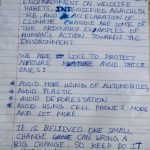 ENCROACHMENT ON WILDLIFE
HABITS, INTENSIFIED AGRICULTU
-RE, AND ACCELARATION OF
CLIMATE CHANGE ARE SOME OF
THE ORDINARY EXAMPLES OF
HUMAN'S ACTION TOWARDS THE
ENVIRONMENT.
WE ARE LIKE TO PROTECT
NATURE AVOID THESE
ONES:
* AVOID MORE USING OF AUTOMOBILES
* AVOID PLASTIC
* AVOID DEFORESTATION
* AVOID USING CELL PHONE & MORE
AND LOT MORE
IT IS BELIEVED ONE SMALL
CHANGE CAN BRING A
BIG CHANGE. SO KEEP DO IT